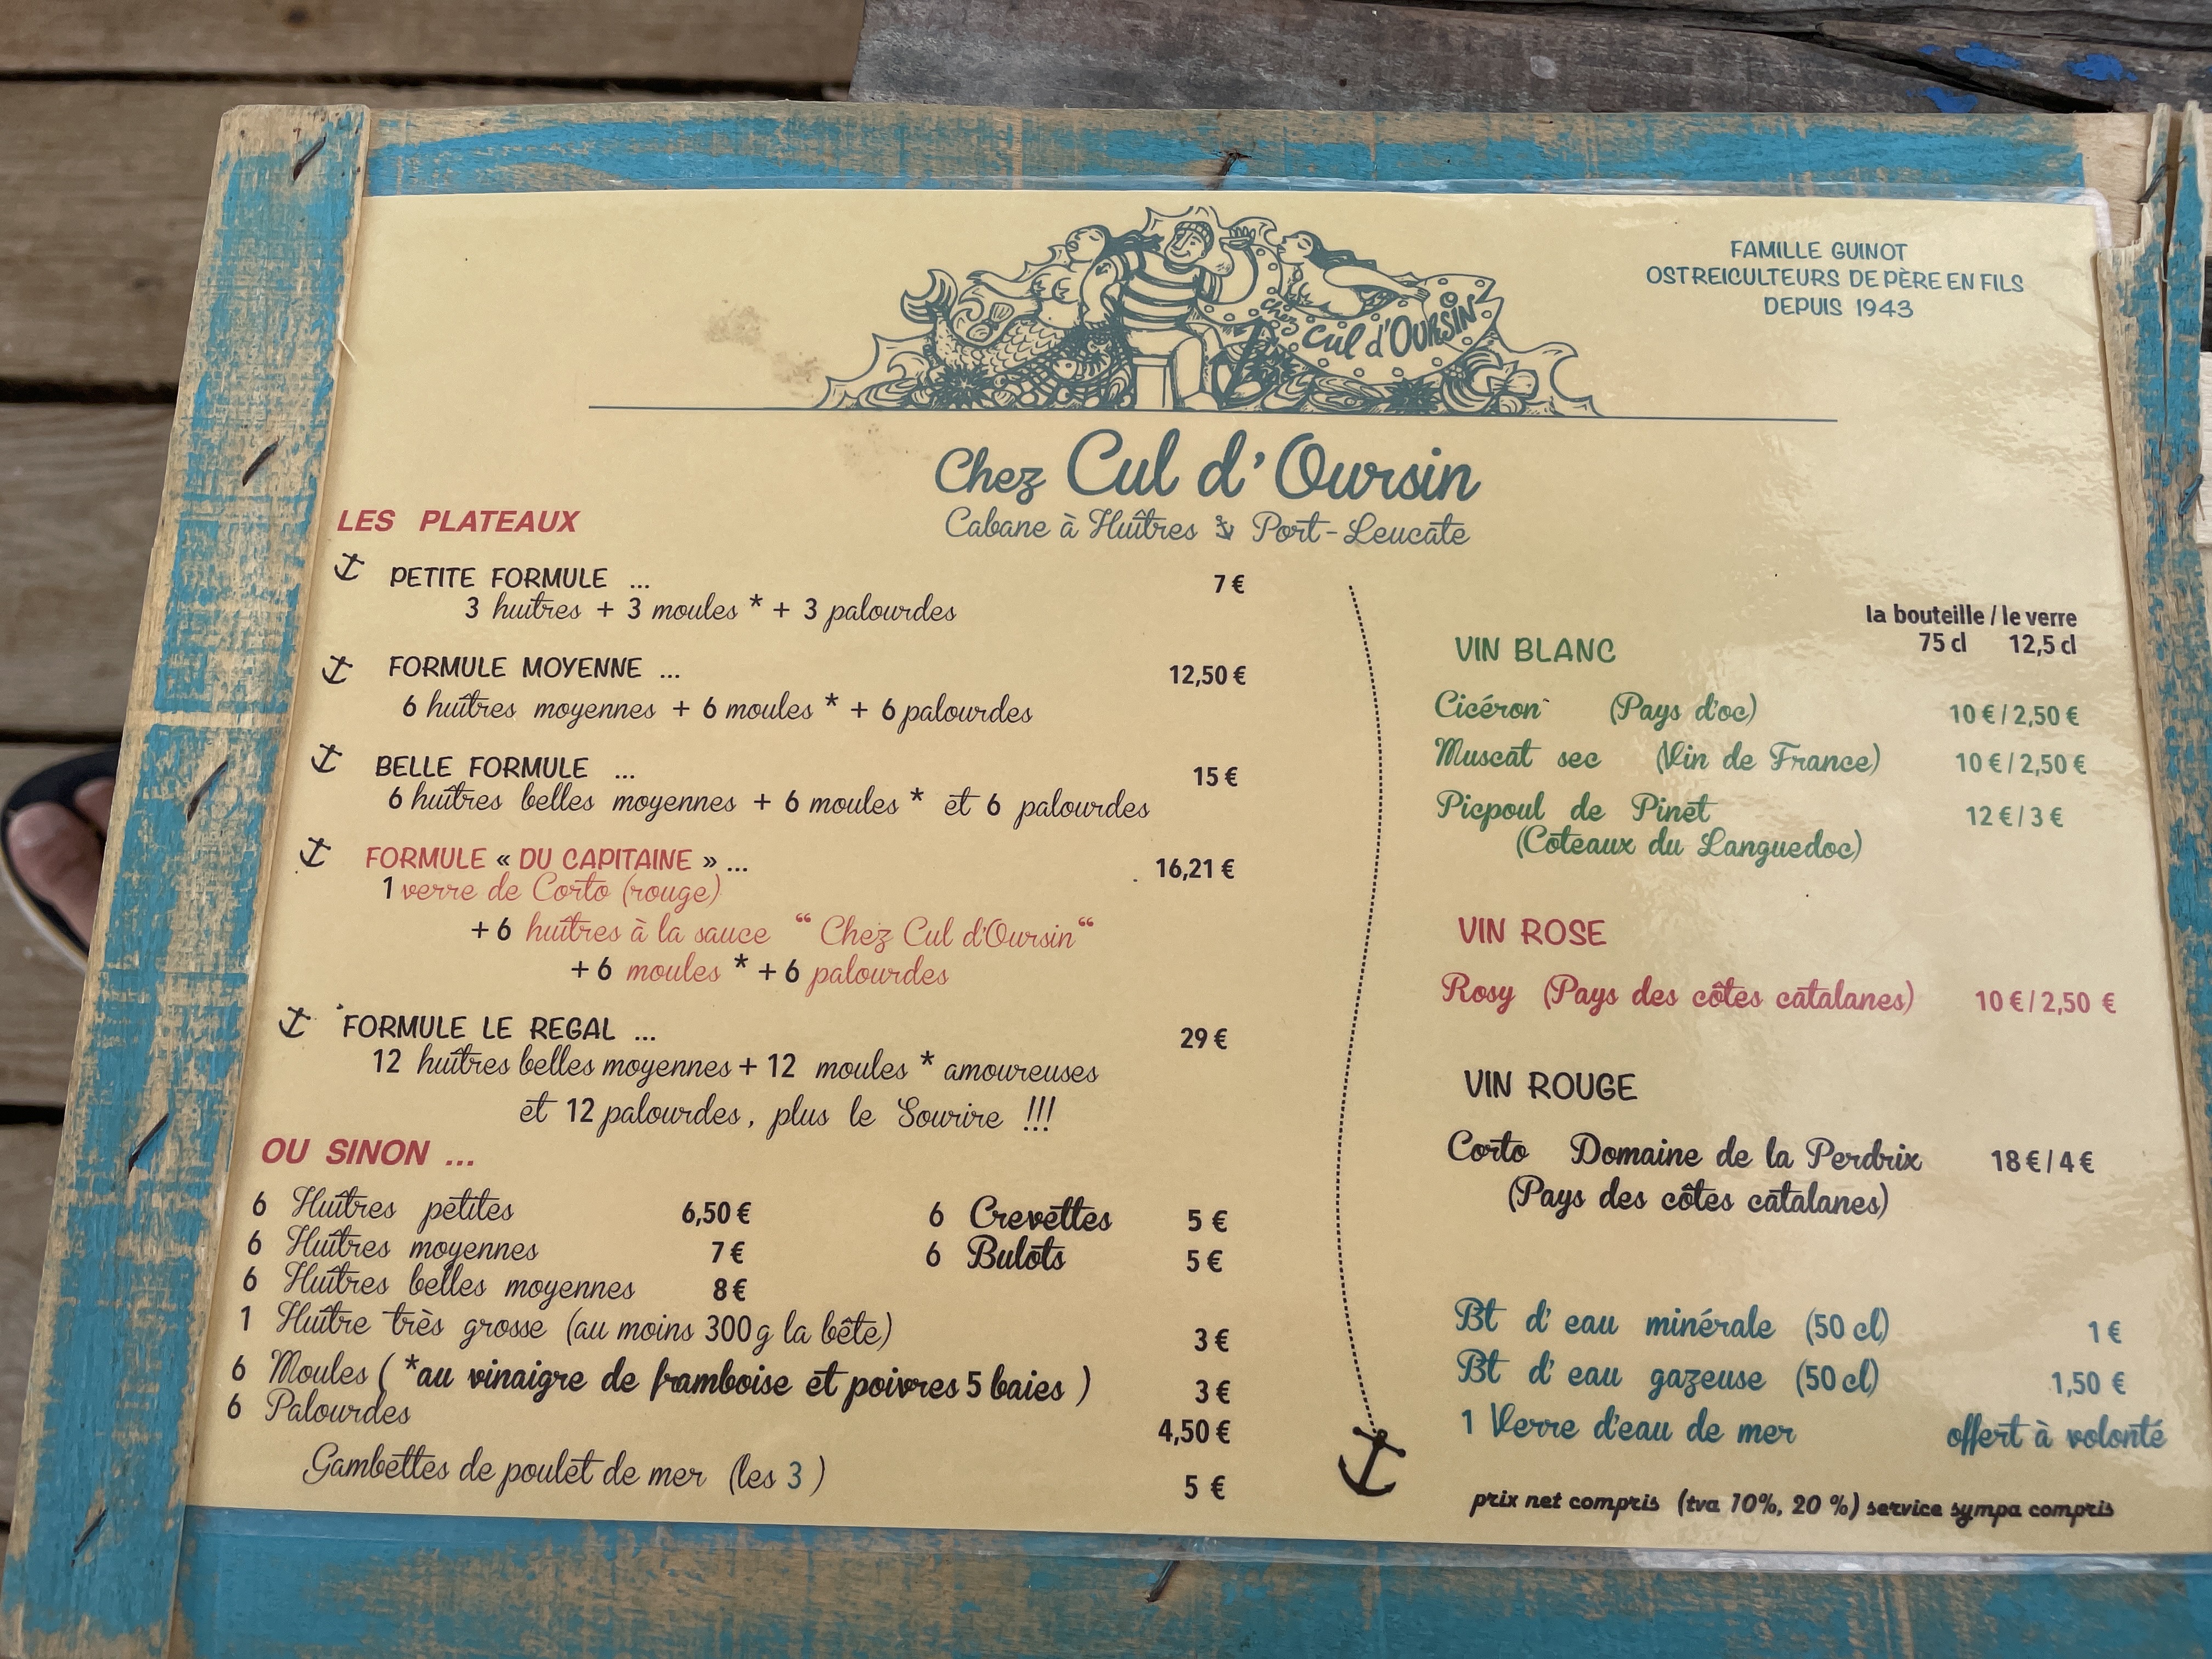 FAMILLE GUINOT
OSTREICULTEURS DE PÈRE EN FILS
DEPUIS 1943
chez
cul d'OURSIN
Chez Cul d'Oursin
Cabane à Huîtres Port-Leucate
LES PLATEAUX
PETITE FORMULE ... 7 €
3 huîtres + 3 moules * + 3 palourdes
FORMULE MOYENNE ... 12,50 €
6 huîtres moyennes + 6 moules * + 6 palourdes
BELLE FORMULE ... 15 €
6 huîtres belles moyennes + 6 moules * et 6 palourdes
FORMULE « DU CAPITAINE » ... 16,21 €
1 verre de Corto (rouge)
+ 6 huîtres à la sauce “ Chez Cul d'Oursin“
+ 6 moules * + 6 palourdes
FORMULE LE REGAL ... 29 €
12 huîtres belles moyennes + 12 moules * amoureuses
et 12 palourdes, plus le Sourire !!!
OU SINON ...
6 Huîtres petites 6,50 €
6 Huîtres moyennes 7 €
6 Huîtres belles moyennes 8 €
6 Crevettes 5 €
6 Bulots 5 €
1 Huître très grosse (au moins 300 g la bête) 3 €
6 Moules ( *au vinaigre de framboise et poivres 5 baies ) 3 €
6 Palourdes 4,50 €
Gambettes de poulet de mer (les 3 ) 5 €
la bouteille / le verre
75 cl 12,5 cl
VIN BLANC
Cicéron (Pays d'oc) 10 € / 2,50 €
Muscat sec (Vin de France) 10 € / 2,50 €
Picpoul de Pinet 12 € / 3 €
(Coteaux du Languedoc)
VIN ROSE
Rosy (Pays des côtes catalanes) 10 € / 2,50 €
VIN ROUGE
Corto Domaine de la Perdrix 18 € / 4 €
(Pays des côtes catalanes)
Bt d' eau minérale (50 cl) 1 €
Bt d' eau gazeuse (50 cl) 1,50 €
1 Verre d'eau de mer offert à volonté
prix net compris (tva 10%, 20 %) service sympa compris